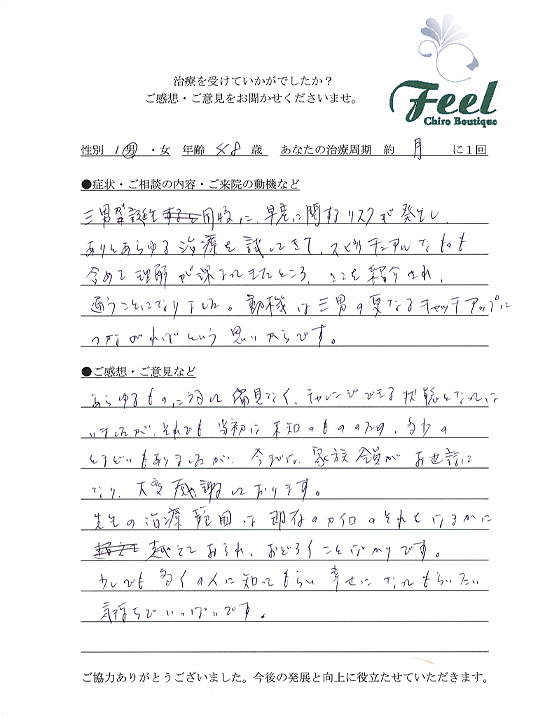 Feel
Chiro Boutique
治療を受けていかがでしたか？
ご感想・ご意見をお聞かせくださいませ。
性別 男 ・女 年齢 48 歳 あなたの治療周期 約 月 に1回
●症状・ご相談の内容・ご来院の動機など
三男が誕生 と同時に、早産に関するリスクが発生し、
ありとあらゆる治療を試してきて、スピリチュアルなものも
含めて理解が深まってきたところ、ここを紹介され、
通うことになりました。動機は三男の更なるキャッチアップに
つながればという思いからです。
●ご感想・ご意見など
あらゆるものに対して偏見なく、チャレンジできる状態となって
いましたが、それでも当初は未知のものの為、多少の
とまどいもありましたが、今では、家族全員がお世話に
なり、大変感謝しております。
先生の治療範囲は既存のカイロのそれをはるかに
越えておられ、おどろくことばかりです。
少しでも多くの人に知ってもらい幸せになってもらいたい
気持ちでいっぱいです。
ご協力ありがとうございました。今後の発展と向上に役立たせていただきます。